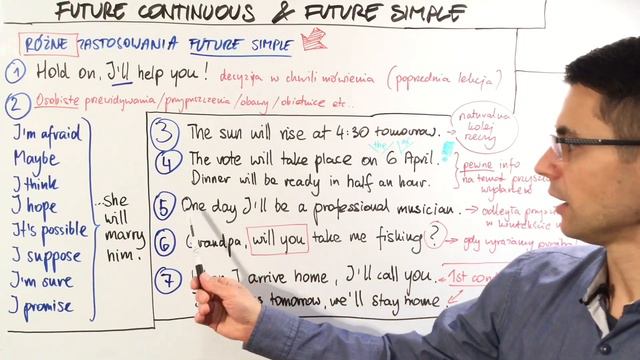 FUTURE CONTINUOUS & FUTURE SIMPLE
RÓŻNE ZASTOSOWANIA FUTURE SIMPLE
① Hold on, I'll help you! decyzja w chwili mówienia (poprzednia lekcja)
② Osobiste przewidywania/przypuszczenia/obawy/obietnice etc..
I'm afraid
Maybe
I think
I hope
It's possible
I suppose
I'm sure
I promise
she
will
marry
him.
③ The sun will rise at 4:30 tomorrow.
naturalna
kolej
rzeczy
the
④ The vote will take place on 6 April.
Dinner will be ready in half an hour.
pewne info
na temat
⑤ One day I'll be a professional musician.
odległa
w kontekście
⑥ Grandpa, will you take me fishing?
gdy wyrażamy
⑦ I arrive home, I'll call you.
1st
tomorrow, we'll stay home.